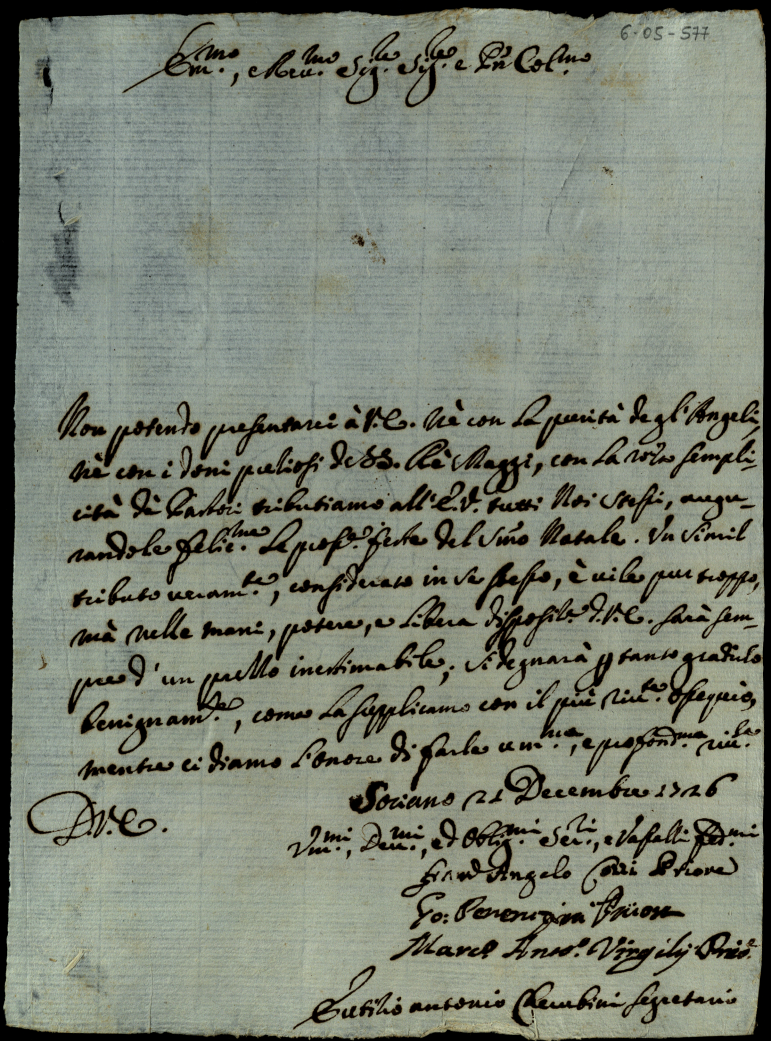 6-05-577
Em.mo, e Reu.mo Sig.re Sig.re e Pñ Col.mo
Non potendo presentarci à V.E. nè con la purità degl'Angeli,
nè con i doni preliosi de SS. Rè Maggi, con la rõza sempli-
cità di Pastori tributiamo all'E.V. tutti Noi stessi, augu-
randole felic.me le pros.e feste del S.mo Natale. Un simil
tributo ueram.te, considerato in se stesso, è uile pur troppo,
mà nelle mani, potere, e libera disposit.e d. V.E. sarà sem-
pre d'un prezzo inestimabile; si degnarà p tanto gradirlo
benignam.te, come la supplicamo con il più riu.te ossequio,
mentre ci diamo l'onore di farle um.ma, e profond.ma riu.za
Soriano 21 Decembre 1726
D.V.E.
Um.mi, Deu.mi, ed Oblig.mi Ser.ri, e Vassalli fed.mi
Angelo Priore
Gio: Priore
Marc' Ant.o Virgilij Prio.e
Rutilio antonio Cherubini segretario